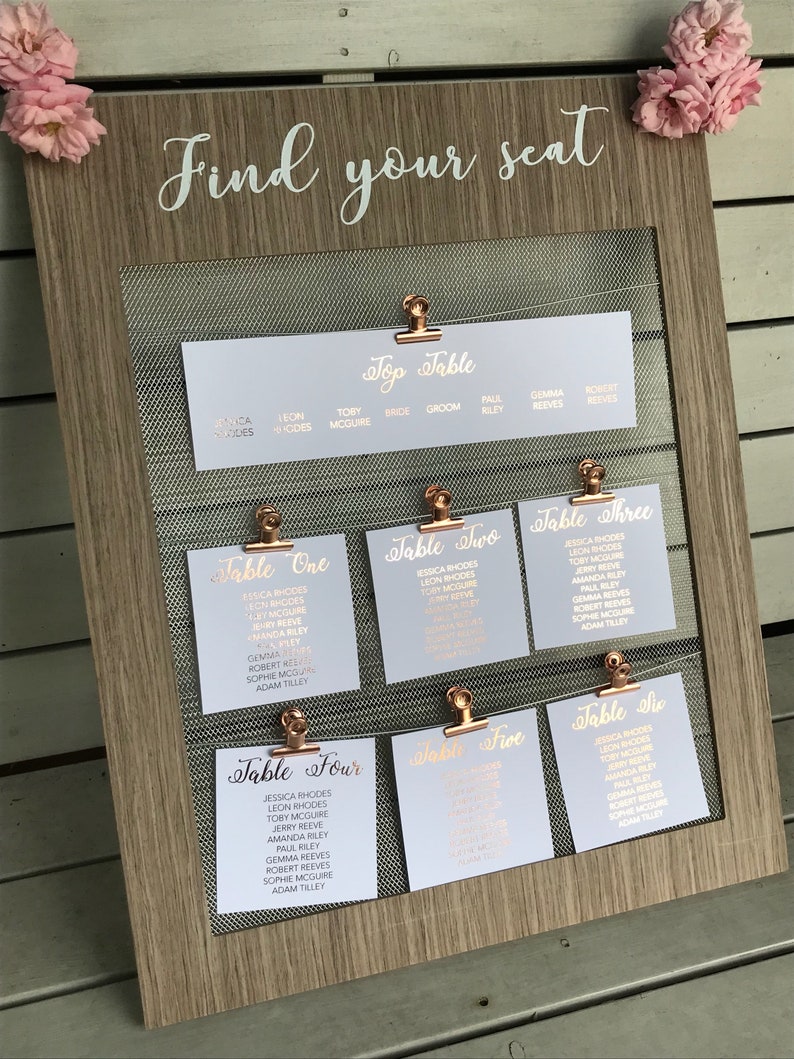 Find your seat
Top Table
JESSICA
RHODES
LEON
RHODES
TOBY
MCGUIRE
BRIDE
GROOM
PAUL
RILEY
GEMMA
REEVES
ROBERT
REEVES
Table One
JESSICA RHODES
LEON RHODES
TOBY MCGUIRE
JERRY REEVE
AMANDA RILEY
PAUL RILEY
GEMMA REEVES
ROBERT REEVES
SOPHIE MCGUIRE
ADAM TILLEY
Table Two
JESSICA RHODES
LEON RHODES
TOBY MCGUIRE
JERRY REEVE
AMANDA RILEY
PAUL RILEY
GEMMA REEVES
ROBERT REEVES
SOPHIE MCGUIRE
ADAM TILLEY
Table Three
JESSICA RHODES
LEON RHODES
TOBY MCGUIRE
JERRY REEVE
AMANDA RILEY
PAUL RILEY
GEMMA REEVES
ROBERT REEVES
SOPHIE MCGUIRE
ADAM TILLEY
Table Four
JESSICA RHODES
LEON RHODES
TOBY MCGUIRE
JERRY REEVE
AMANDA RILEY
PAUL RILEY
GEMMA REEVES
ROBERT REEVES
SOPHIE MCGUIRE
ADAM TILLEY
Table Five
JESSICA RHODES
ROBERT REEVES
SOPHIE MCGUIRE
ADAM TILLEY
Table Six
JESSICA RHODES
LEON RHODES
TOBY MCGUIRE
JERRY REEVE
AMANDA RILEY
PAUL RILEY
GEMMA REEVES
ROBERT REEVES
SOPHIE MCGUIRE
ADAM TILLEY